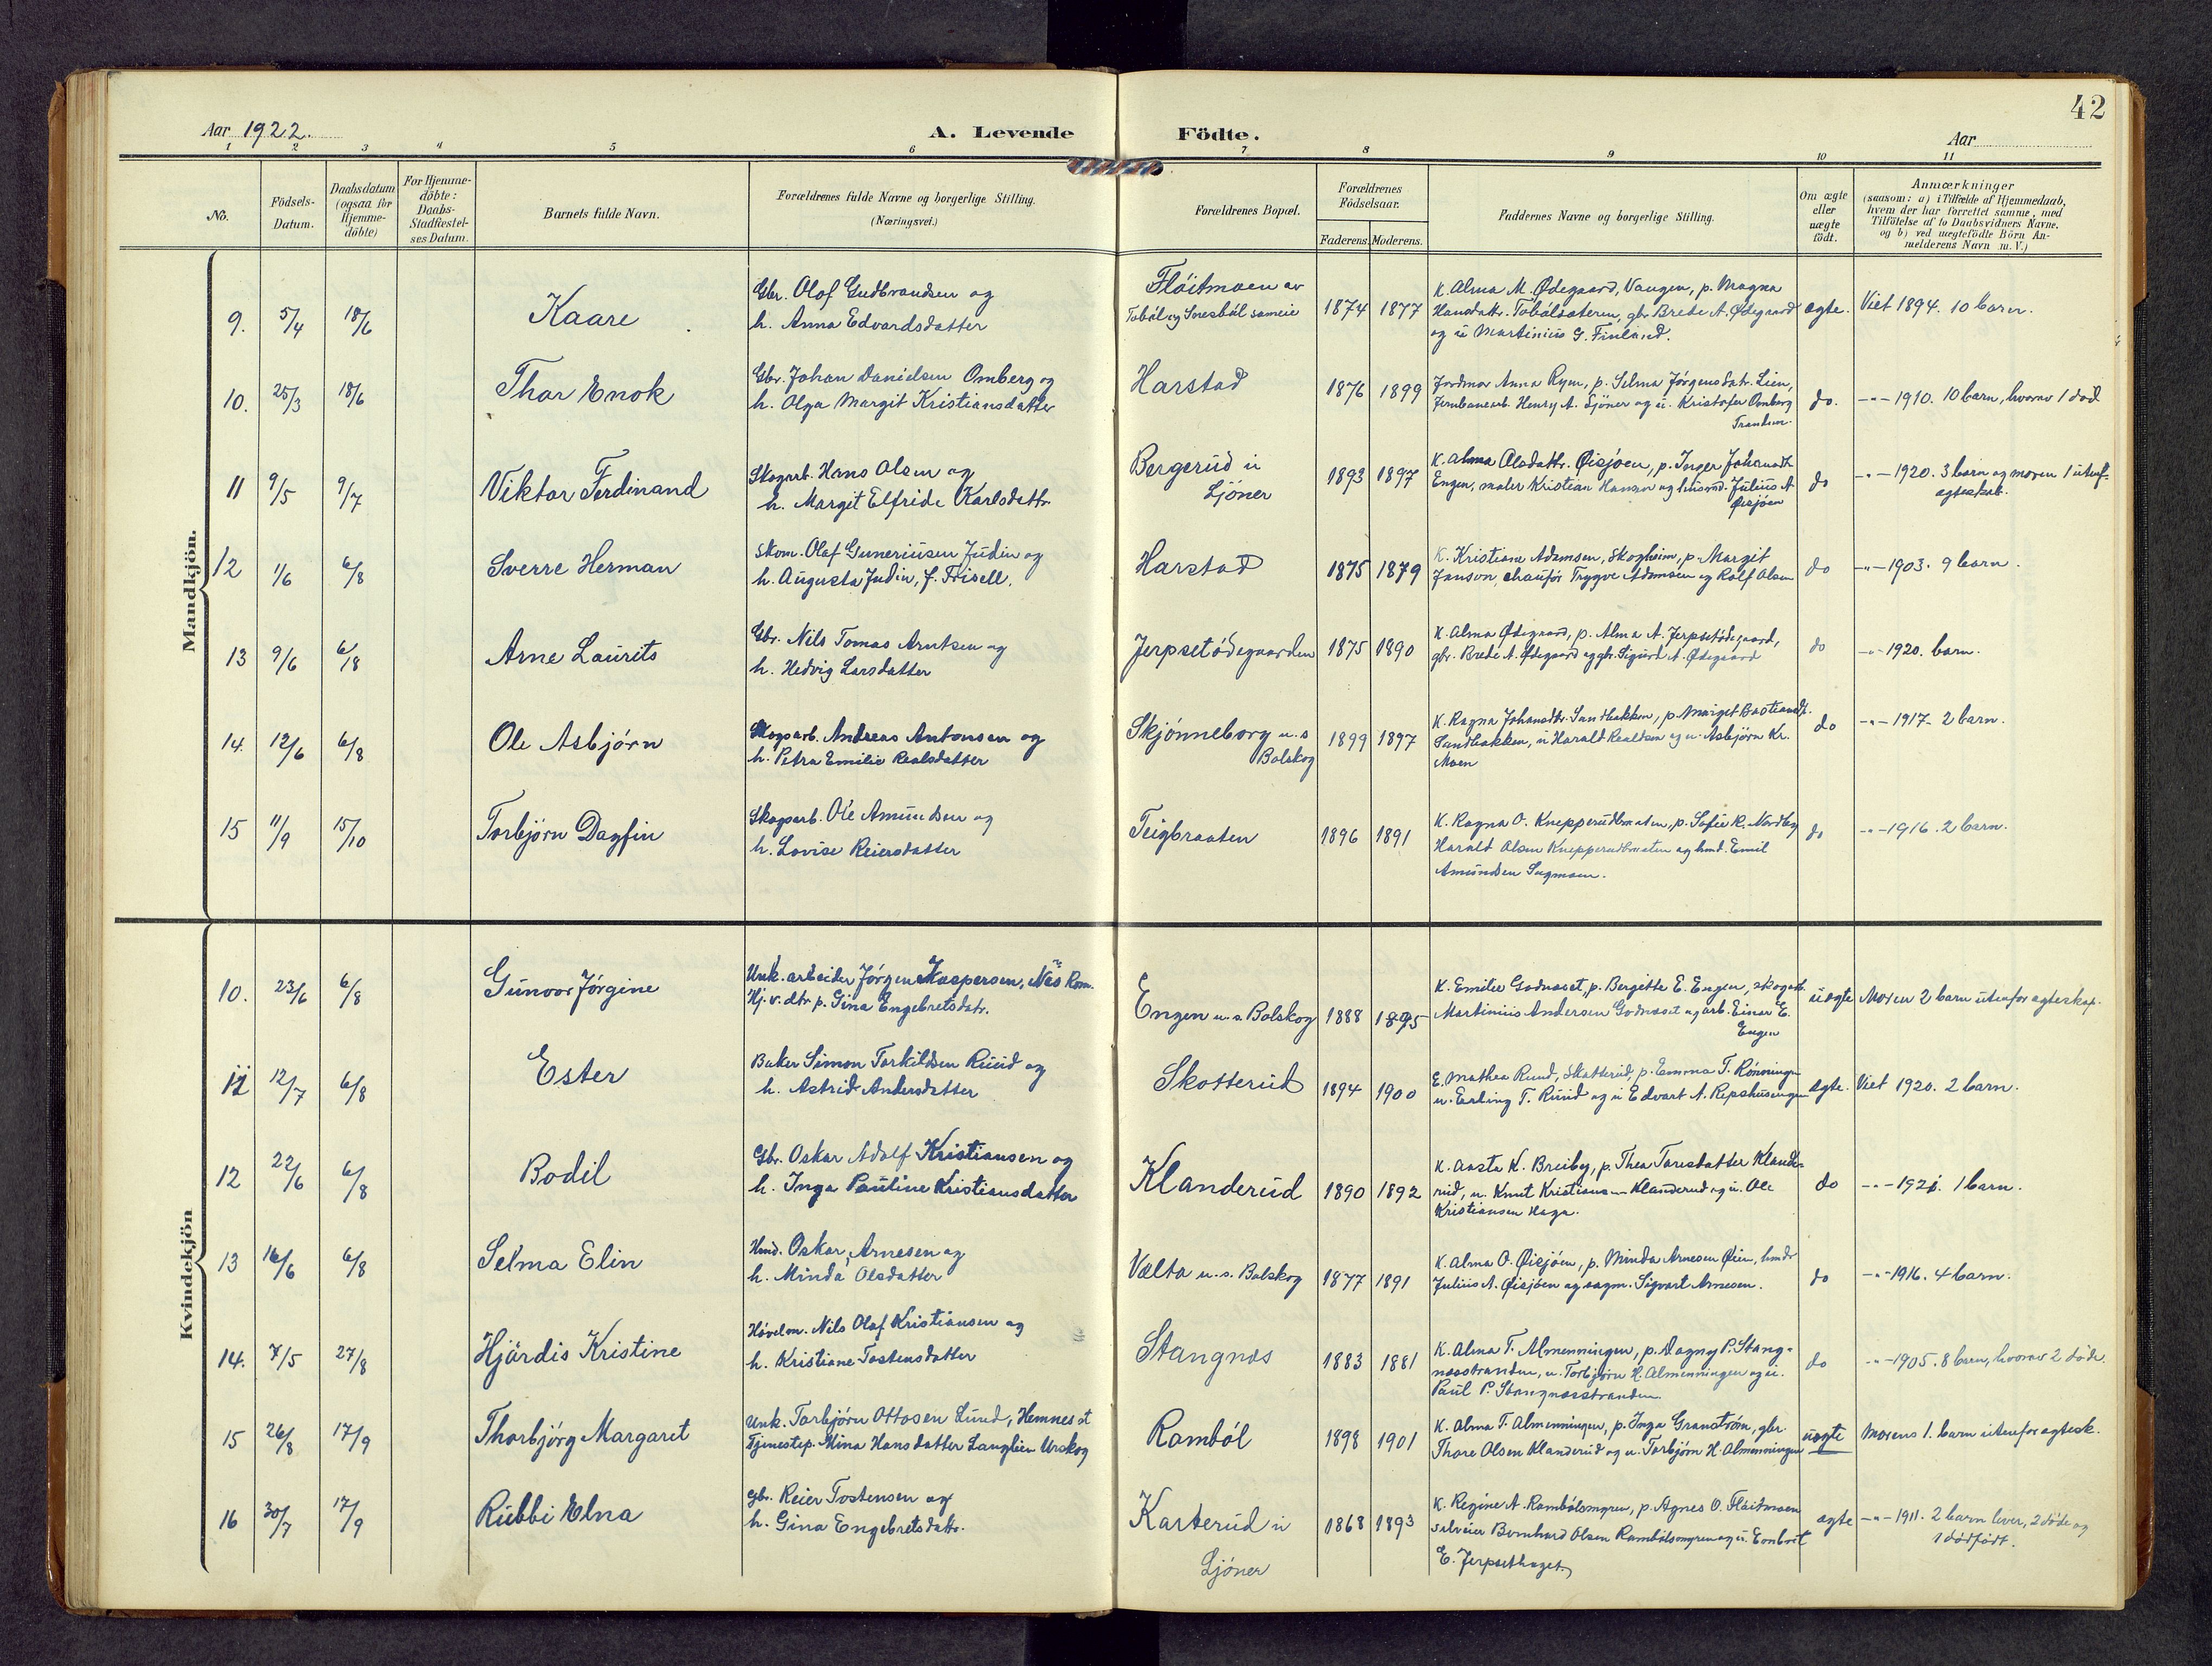 42
Aar 1922.
A. Levende Födte.
Aar
1 2 3 4 5 6 7 8 9 10 11
No.
Födsels-
Datum.
Daabsdatum
(ogsaa for
Hjemme-
döbte)
For Hjemme-
döbte:
Daabs-
Stadfæstel-
ses Datum.
Barnets fulde Navn.
Forældrenes fulde Navne og borgerlige Stilling.
(Næringsvei.)
Forældrenes Bopæl.
Forældrenes
Födselsaar.
Faderens. Moderens.
Faddernes Navne og borgerlige Stilling.
Om ægte
eller
uægte
födt.
Anmærkninger
(saasom: a) i Tilfælde af Hjemmedaab,
hvem der har forrettet samme, med
Tilföielse af to Daabsvidners Navne,
og b) ved uægtefödte Börn An-
melderens Navn m. V.)
Mandkjön.
9. 5/4 18/6 Kaare
Gbr. Olof Gudbrandsen og
h. Anna Edvardsdatter
Flöitmoen av
Taböl og Snesböl sameie
1874 1877
K. Alma M. Ødegaard, Vangen, p. Magna
Hansdatr. Tobölsæteren, gbr Brede A. Ødegaard
og u Martinius G. Finland.
ægte.
Viet 1894. 10 barn.
10. 25/3 18/6 Thor Enok
Gbr. Johan Danielsen Omberg og
h. Olga Margit Kristiansdatter
Harstad
1876 1899
Jordmor Anna Ryen, p. Selma Jörgensdatr. Lien,
Jernbanearb. Henry A. Sjöner og u. Kristofer Omberg
Trandum.
do.
-"- 1910. 10 barn, hvorav 1 död
11 9/5 9/7 Viktor Ferdinand
Skogarb. Hans Olsen og
h. Margit Elfride Karlsdattr.
Bergerud u
Ljöner
1893 1897
K. Alma Olsdattr. Øisjoen, p. Inger Johansdtr
Engen, maler Kristian Hansen og husmd. Julius A
Øisjöen
do
-"- 1920. 3 barn og moren 1 utenf.
ægteskab.
12 1/6 6/8 Sverre Herman
Skom. Olaf Guneriusen Judin og
h. Augusta Judin, f. Frisell.
Harstad
1875 1879
K. Kristiane Adamsen, Skogheim, p. Margit
Janson, chauför Trygve Adamsen og Rolf Olsen
do
-"- 1903. 9 barn.
13 9/6 6/8 Arne Laurits
Gbr. Nils Tomas Arntsen og
h. Hedvig Larsdatter
Jerpsetödegaarden
1875 1890
K. Alma Ødegaard, p. Alma A. Jerpsetödegaard,
gbr. Brede A. Ødegaard og gbr. Sigurd A. Ødegaard
do
-"- 1920. barn.
14. 12/6 6/8 Ole Asbjörn
Skogsarb. Andreas Antonsen og
h. Petra Emilie Realsdatter
Skjönneborg u. s
Bolskog
1899 1897
K. Ragna Johansdtr. Sandbakken, p. Margit Bastiansdtr.
Sandbakken, u Harald Realdsen og u. Asbjörn Kr.
Moen
do
-"- 1917. 2 barn.
15 11/9 15/10 Torbjörn Dagfin
Skogsarb. Ole Amundsen og
h. Lovise Reiersdatter
Teigbraaten
1896 1891
K. Ragna O. Knepperudbraaten, p. Sofie R. Nordby
Harald Olsen Knepperudbraaten og hmd. Emil
Amundsen Sagmoen.
do
-"- 1916. 2 barn.
Kvindekjön
10. 23/6 6/8 Gunvor Jörgine
Unk. arbeider Jörgen Kaspersen, Nes Rom.
Hj. v. dtr p. Gina Engebretsdatr.
Engen u. s. Bolskog
1888 1895
K. Emilie Godnæset, p. Bergitte E. Engen, skogarb.
Martinius Andersen Godnæset og arb. Einar E.
Engen
uægte
Moren 2 barn utenfor ægteskap.
11 12/7 6/8 Ester
Baker Simon Torkildsen Ruud og
h. Astrid Andersdatter
Skotterud
1894 1900
E. Mathea Ruud, Skotterud, p. Emma T. Rönningen
u. Erling T. Ruud og u Edvart A. Repshusengen
ægte.
Viet 1920. 2 barn.
12 22/6 6/8 Bodil
Gbr. Oskar Adolf Kristiansen og
h. Inga Pauline Kristiansdatter
Klanderud
1890 1892
K. Aasta K. Breiby, p. Thea Toresdatter Klande-
rud, u. Knut Kristiansen Klanderud og u. Ole
Kristiansen Haga.
do
-"- 1921. 1 barn.
13 16/6 6/8 Selma Elin
Hmd. Oskar Arnesen og
h. Minda Olsdatter
Vælta u. s. Bolskog
1877 1891
K. Alma O. Øisjöen, p. Minda Arnesen Øien, hmdr
Julius A. Øisjöen og sagm. Sigvart Arnesen.
do
-"- 1916. 4 barn.
14. 7/5 27/8 Hjördis Kristine
Hövelm. Nils Olaf Kristiansen og
h. Kristiane Tostensdatter
Stangnæs
1883 1881
K. Alma T. Almenningen, p. Dagny P. Stang-
næsstranden, u. Torbjörn H. Almenningen og u.
Paul P. Stangnæsstranden.
do
-"- 1905. 8 barn, hvorav 2 döde.
15 26/8 17/9 Thorbjörg Margaret
Unk. Torbjörn Ottosen Lund, Hemnes st
Tjenestep. Mina Hansdatter Langlien Urskog
Ramböl
1898 1901
K. Alma T. Almenningen, p. Inga Granström, gbr
Thore Olsen Klanderud og u. Torbjörn H. Almenningen
uægte
Morens 1. barn utenfor ægtesk.
16 30/7 17/9 Rubbi Elna
gbr. Reier Tostensen og
h. Gina Engebretsdattr.
Karterud u
Ljöner
1868 1893
K. Regine A. Rambölsmyren, p. Agnes O. Flöitmoen
selveier Bernhard Olsen Rambölsmyren og u. Embret
E. Jerpsethaget.
ægte
-"- 1911. 2 barn lever, 2 döde og
1 dödfödt.